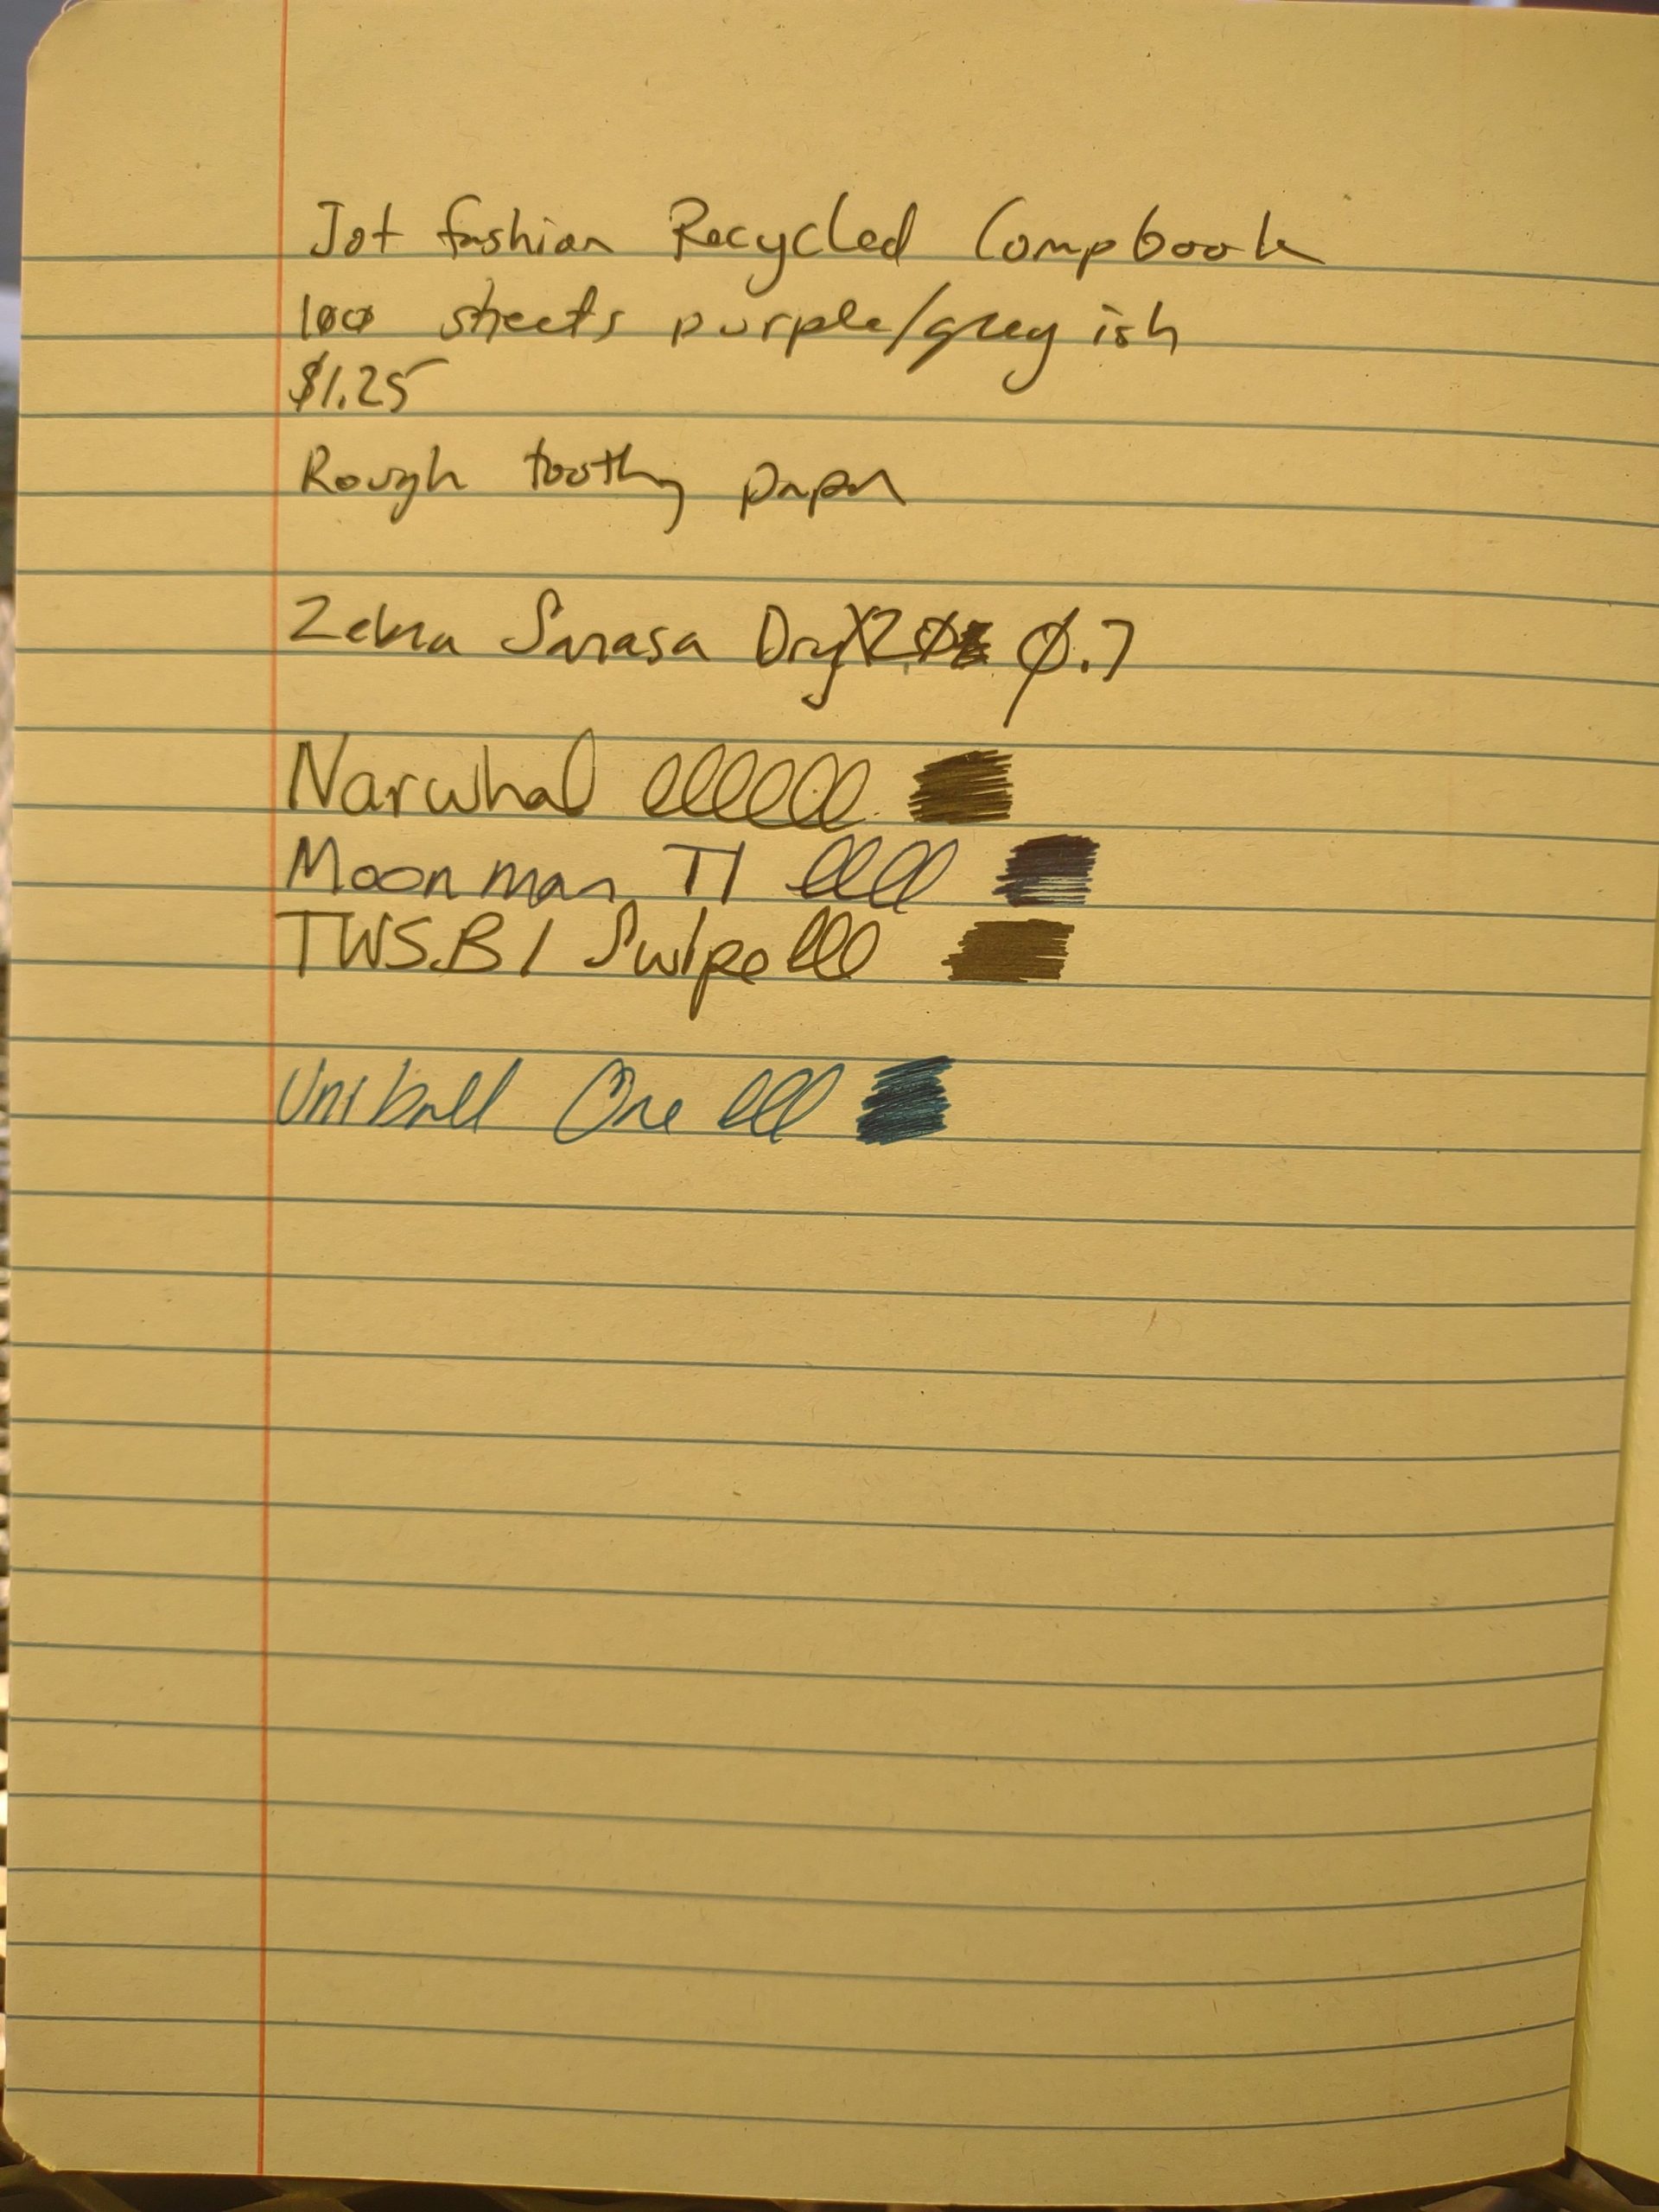 Jot fashion Recycled Compbook
100 sheets purple/grey ish
$1.25
Rough toothy paper
Zebra Sarasa Dry X20 0.7
Narwhal
Moonman T1
TWSBI Swipe
Uniball One